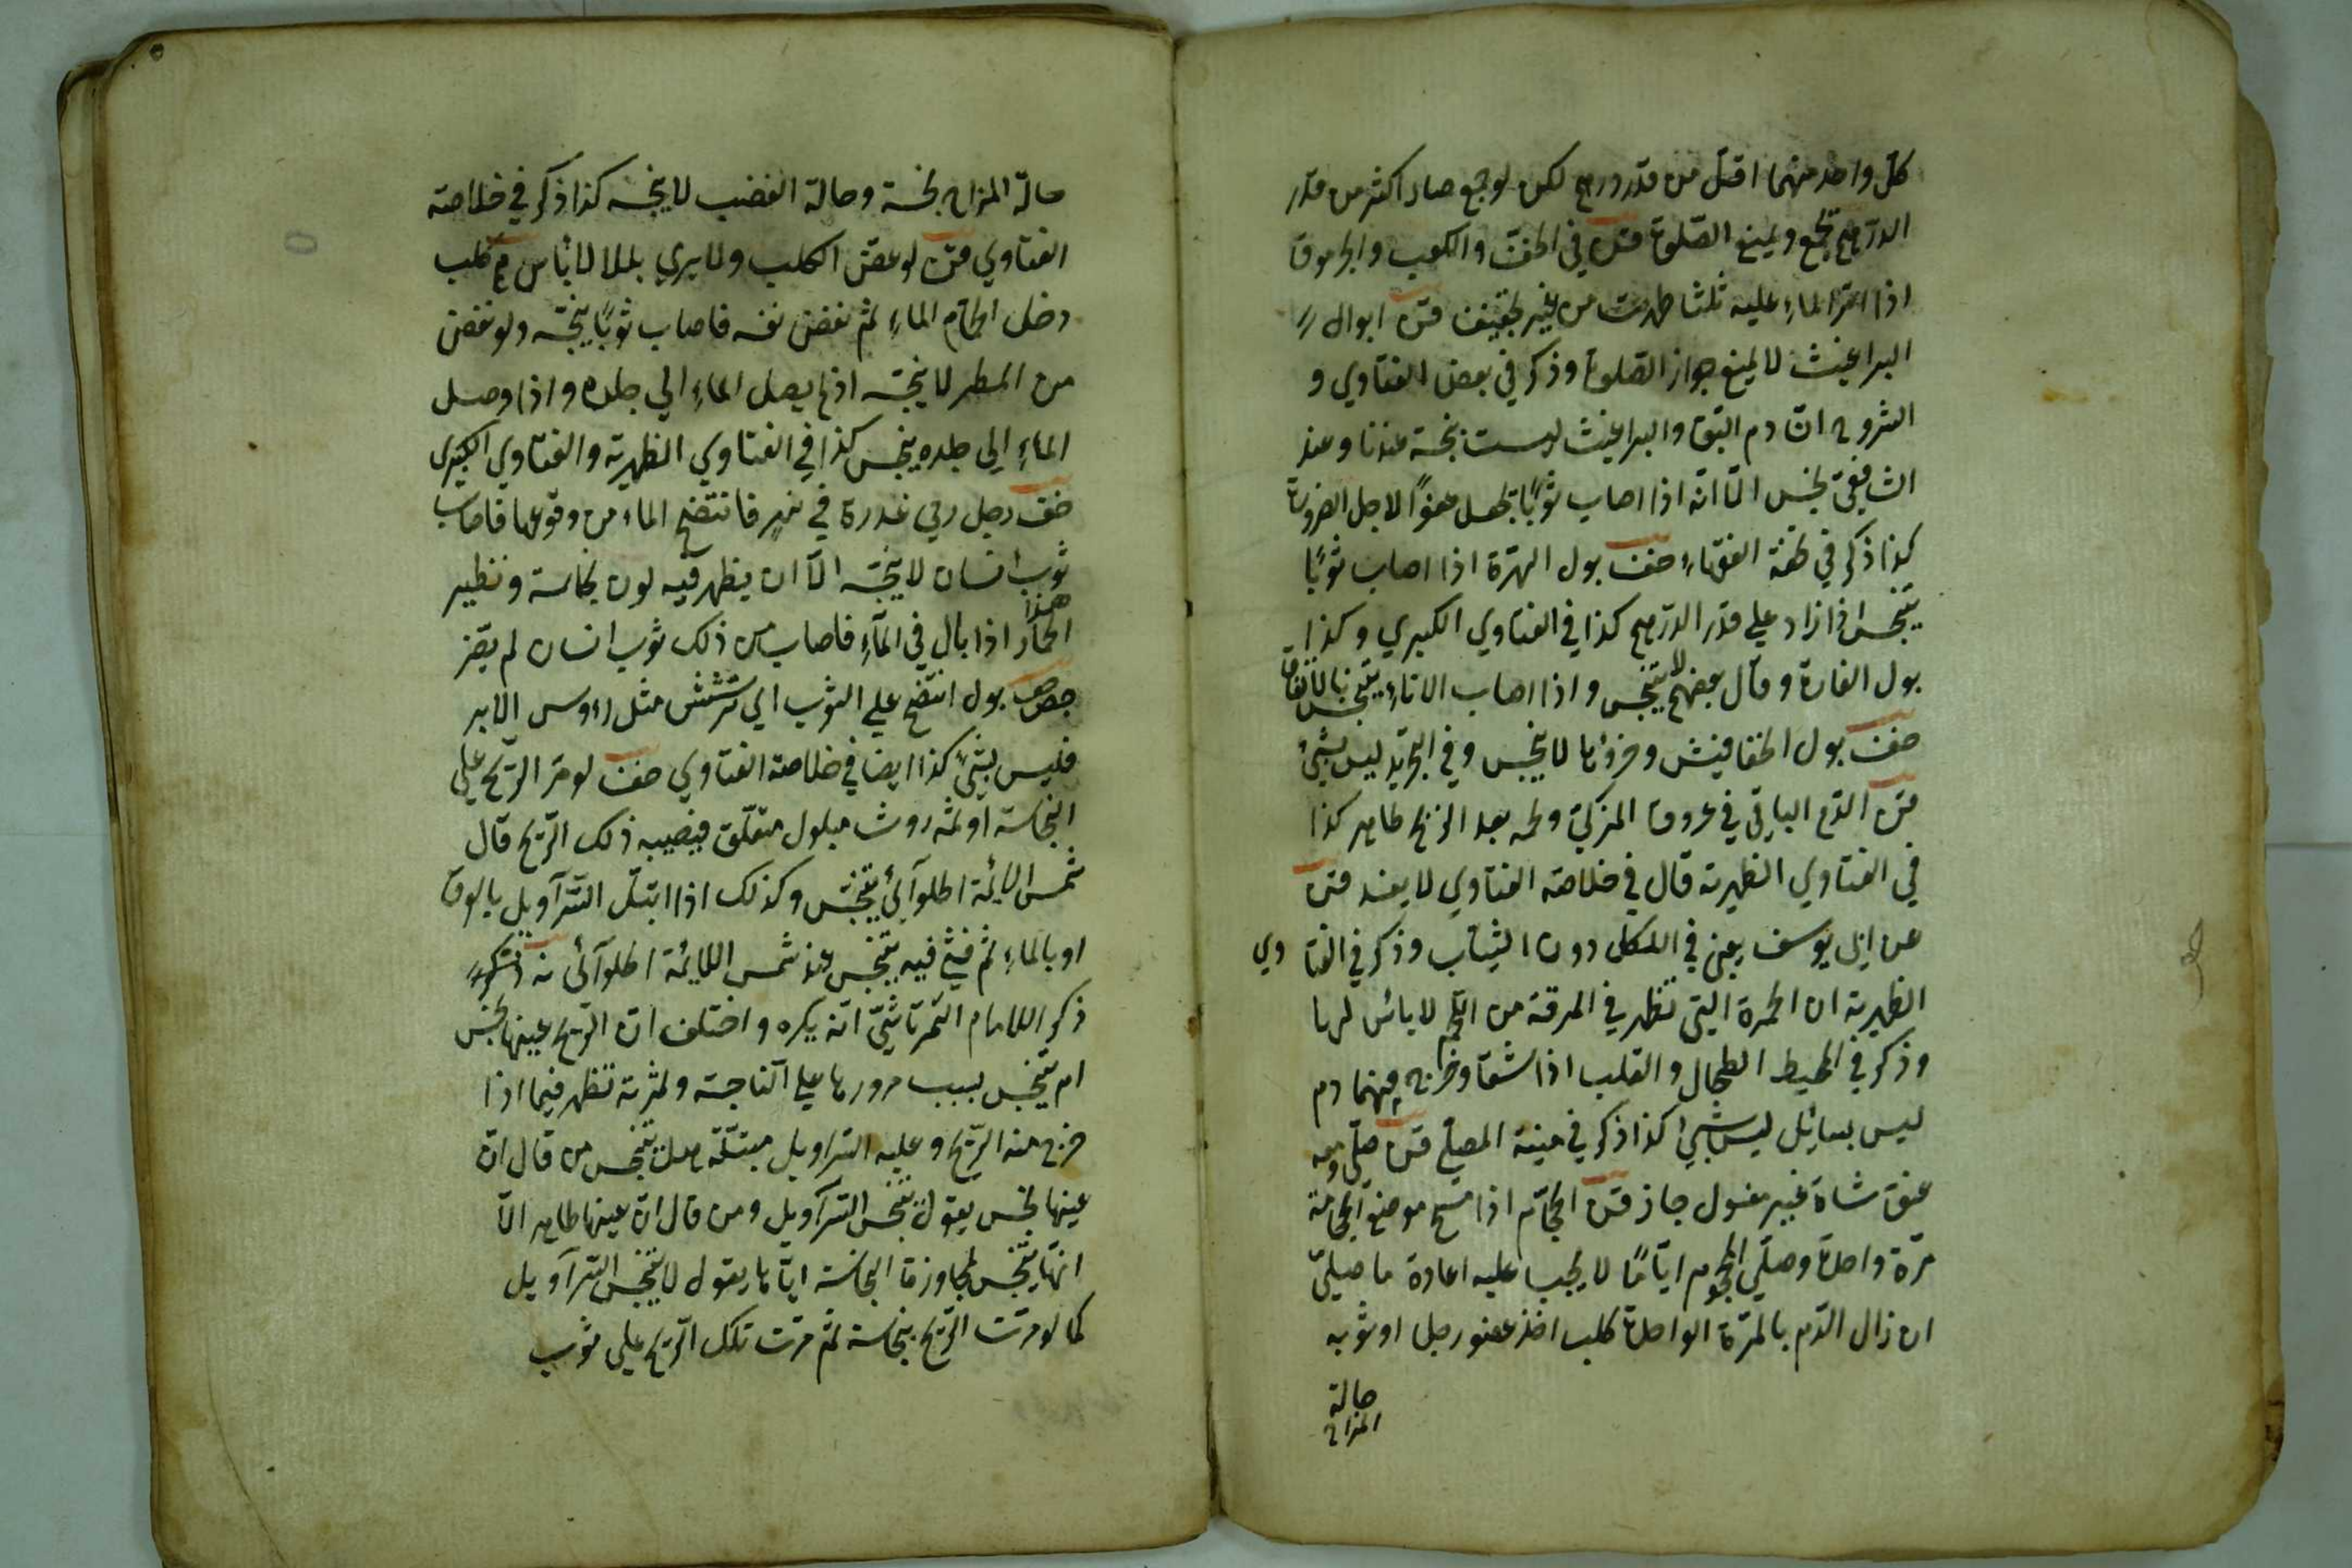 كل واحد منهما اقل من قدر درهم لكن لو جمع صار اكثر من قدر
الدرهم يجمع ويمنع الصلوة في الخف والكعب والجرموق
اذا امر الماء عليه ثلثا طهرت من غير تجفيف ابوال
البراغيث لا يمنع جواز الصلوة وذكر في بعض الفتاوي و
الشروح ان دم البق والبراغيث ليست بنجسة عندنا وعند
الشافعي نجس الا انه اذا اصاب ثوبا يجعل عفوا لاجل الضرورة
كذا ذكر في تحفة الفقهاء بول الهرة اذا اصاب ثوبا
يتنجس اذا زاد علي قدر الدرهم كذا في الفتاوي الكبيري وكذا
بول الفارة وقال بعضهم لا يتنجس واذا اصاب الاناء يتنجس بالاتفاق
بول الخفافيش وخرؤها لا ينجس وفي التجريد ليس بشئ
الدم الباقي في عروق المزكي ولحمه بعد الذبح طاهر كذا
في الفتاوي الظهيرية قال في خلاصة الفتاوي لا يفسد
عن ابي يوسف يعني في الاكل دون الثياب وذكر في الفتاوي
الظهيرية ان الحمرة التي تظهر في المرقة من اللحم لا بائس لها
وذكر في المحيط الطحال والقلب اذا شقا وخرج منهما دم
ليس بسائل ليس بشئ كذا ذكر في منية المصلي صلي ومعه
عنق شاة غير مغسول جاز الحجام اذا مسح موضع الحجامة
مرة واحدة وصلي المحجوم اياما لا يجب عليه اعادة ما صلي
ان زال الدم بالمرة الواحدة كلب اخذ عضو رجل او ثوبه
حالة
المزاح
حالة المزاح نجسة وحالة الغضب لا ينجسه كذا ذكر في خلاصة
الفتاوي لو عض الكلب ولا يري بللا لا بأس كلب
دخل الماء ثم نفض نفسه فاصاب ثوبا ينجسه ولو نفض
من المطر لا ينجسه اذ لم يصل الماء الي جلده واذا وصل
الماء الي جلده ينجس كذا في الفتاوي الظهيرية والفتاوي الكبيري
رجل رمي عذرة في نهر فانتضح الماء من وقوعها فاصاب
ثوب انسان لا ينجسه الا ان يظهر فيه لون نجاسة ونظير
هذا الحمار اذا بال في الماء فاصاب من ذلك ثوب انسان لم يضر
بول انتضح علي الثوب اي ترشش مثل رءوس الابر
فليس بشئ كذا ايضا في خلاصة الفتاوي لو مر الريح علي
النجاسة او ثمه روث مبلول متعلق فيصيبه ذلك الريح قال
شمس الائمة الحلوائي يتنجس وكذلك اذا ابتل السراويل بالعرق
او بالماء ثم فيه يتنجس عند شمس الائمة الحلوائي
ذكر الامام التمرتاشي انه يكره واختلف ان الريح عينها نجس
ام يتنجس بسبب مرورها علي النجاسة وثمرته تظهر فيما اذا
خرج منه الريح وعليه السراويل مبتلة هل يتنجس من قال ان
عينها نجس يقول يتنجس السراويل ومن قال ان عينها طاهر الا
انها يتنجس لمجاورة النجاسة اياها يقول لا يتنجس السراويل
كما لو مرت الريح بنجاسة ثم مرت تلك الريح علي ثوب